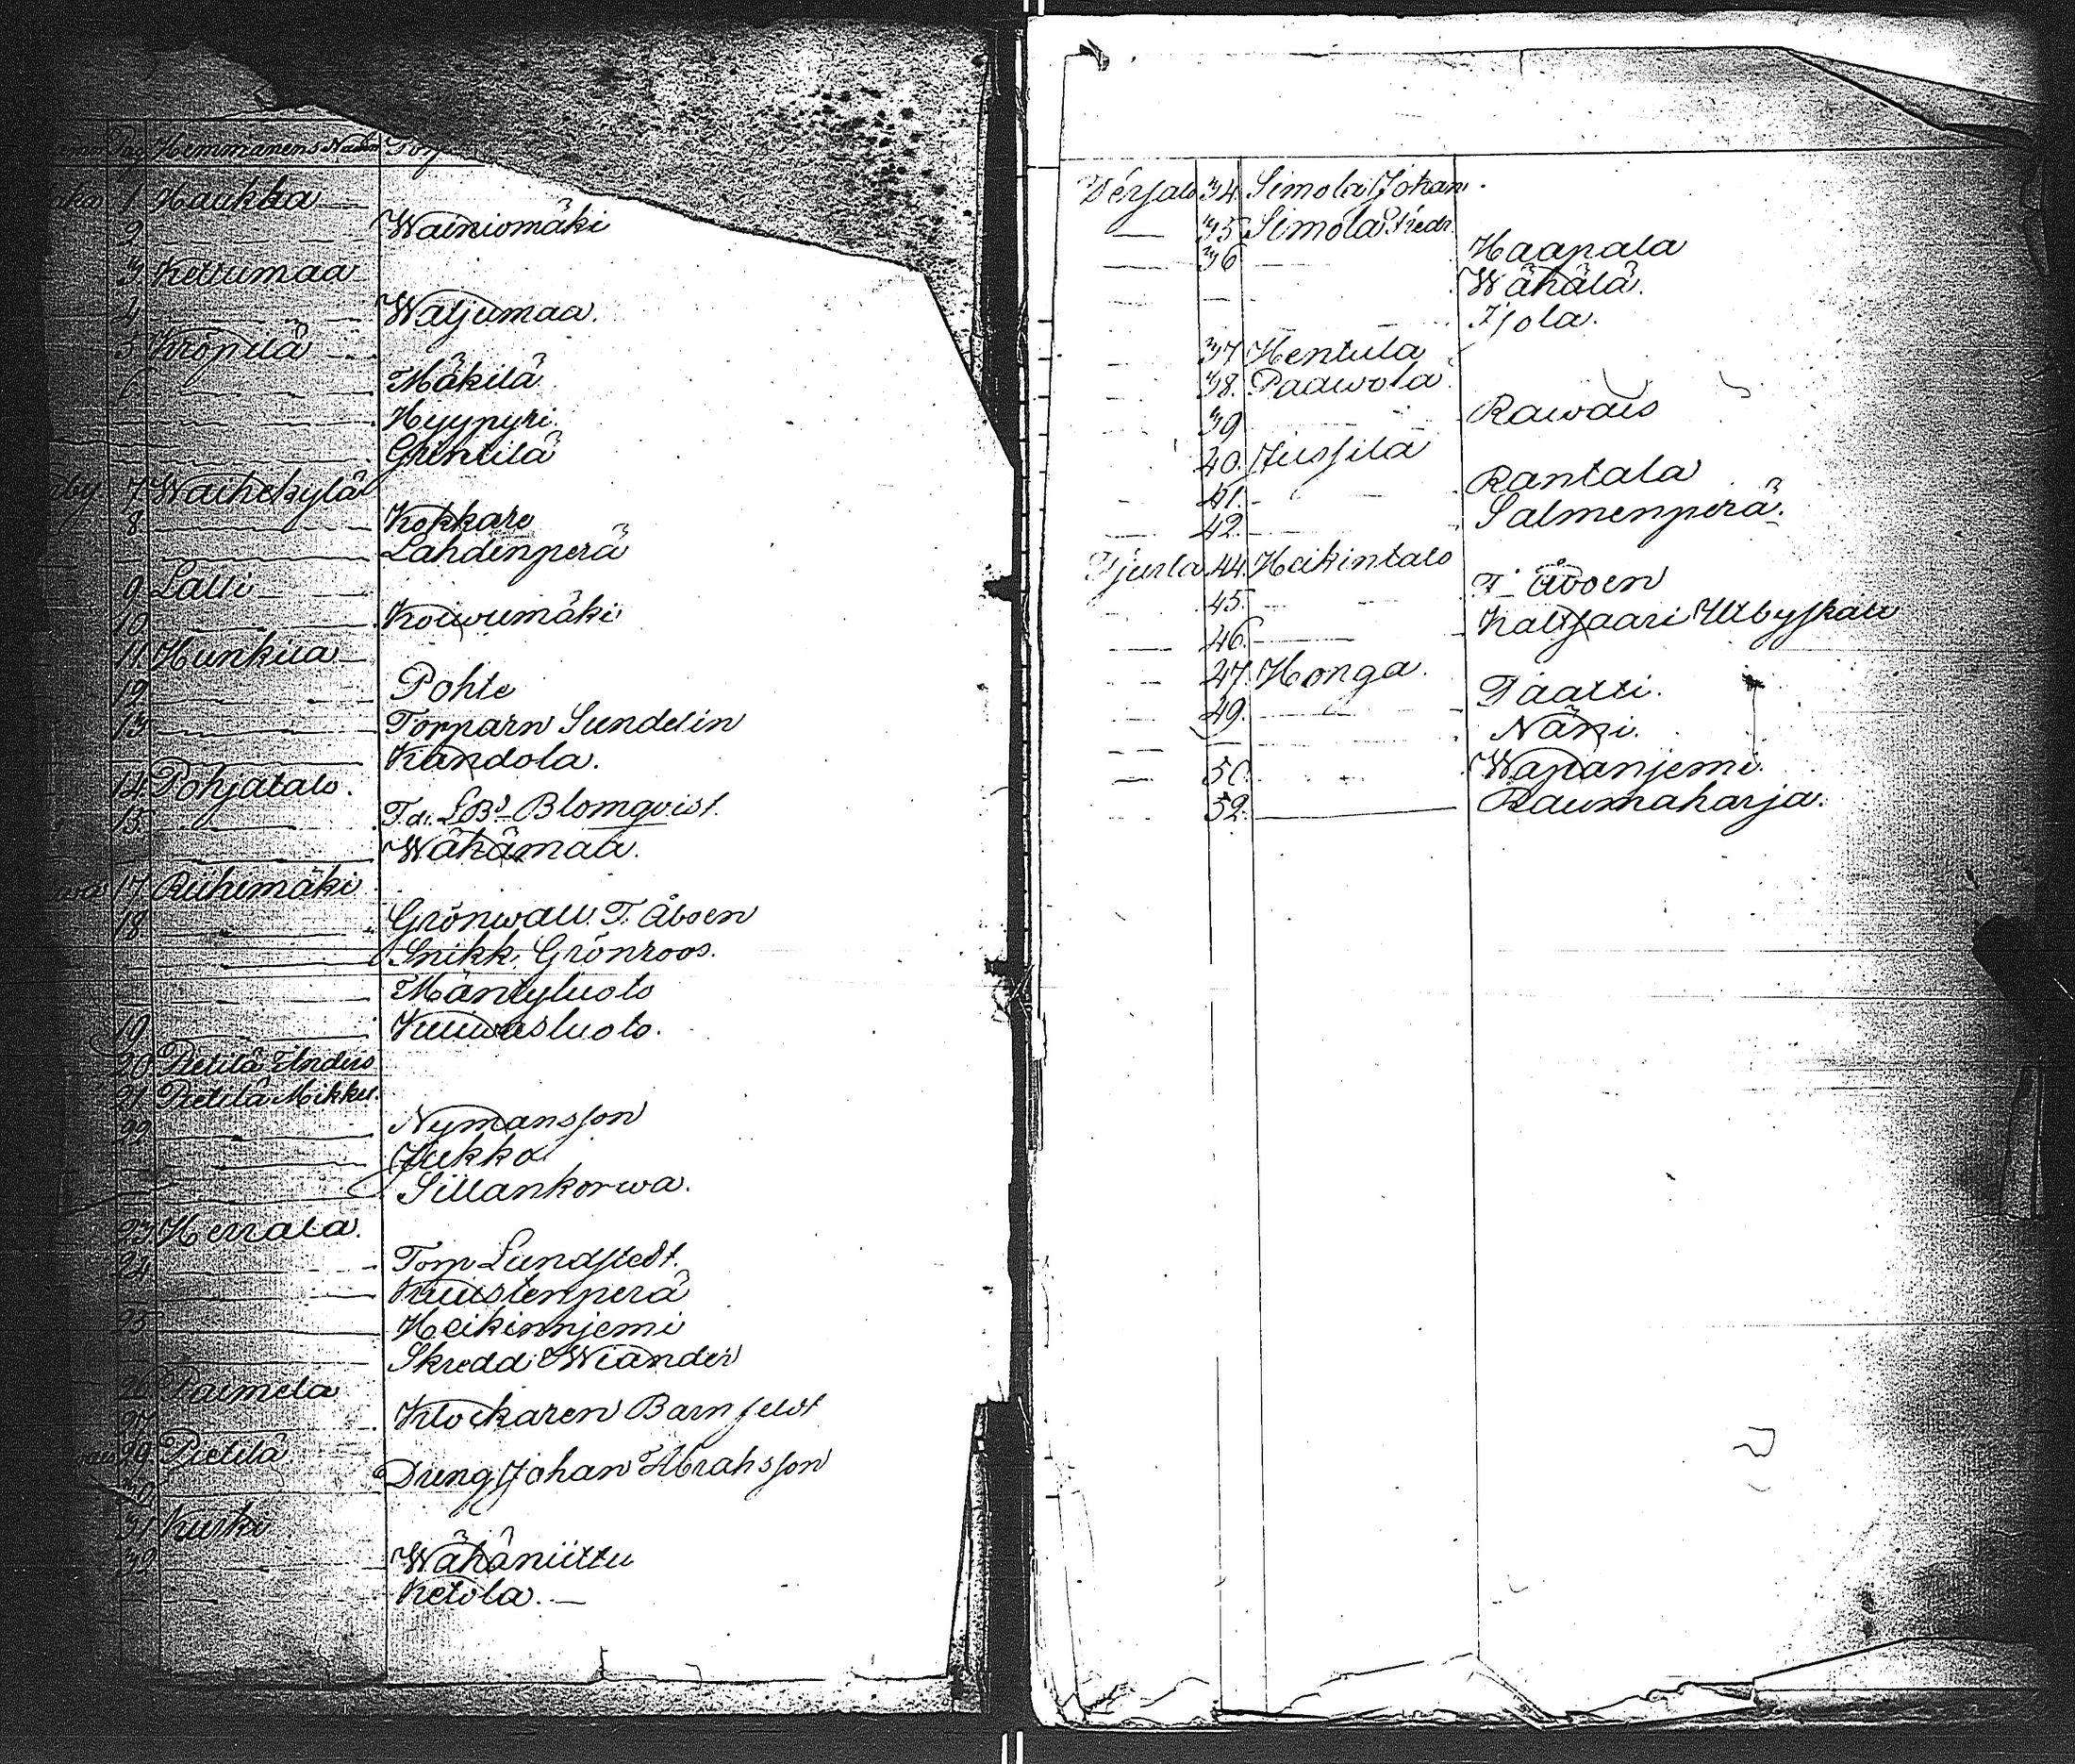 Pag Hemmanens Namn Torp
1 Haukka
2 Wainiomäki
3 Kettumaa
4 Waljumaa.
5 Kröpilä
6 Mäkilä
Hyypyri
Grintilä
7 Waihekylä
8 Kokkare
Lahdinperä
9 Lalli
10 Koiwumäki
11 Hunkua
12 Pohte
13 Torparn Sundelin
Kandola.
14 Pohjatalo.
15 Blomqvist.
Wähämaa.
17 Ruhimäki
18 Grönwall. T. Åboen
Snikk. Grönroos.
Mäntyluoto
19 Kuuwasluoto.
20 Pietilä Anders
21 Pietilä Mikkel.
22 Nymansson
Jukka
Sillankorwa.
23 Herrala.
24 Torp Lundstedt.
Kuustenperä
25 Heikinnjemi
Skredd Wiander
26 Paimela
27 Klockaren Barnfelst
29 Pietilä
30 Dreng Johan Abrahsson
31 Kurki
32 Wähäniittu
Ketola.
Werjalo 34. Simola Johan.
35 Simola Fredr
36 Haapala
Wähälä.
Ijola.
37 Hentula
38. Paawola
39 Rawais
40. Jussila
41. Rantala
42. Salmenperä.
Tjurla 44. Heikintalo
45. T. Åboen
46. Kaltsaari Utbyskalo
47. Honga.
49. Taatti.
Näni.
50. Wapanjemi.
52. Raumaharja.